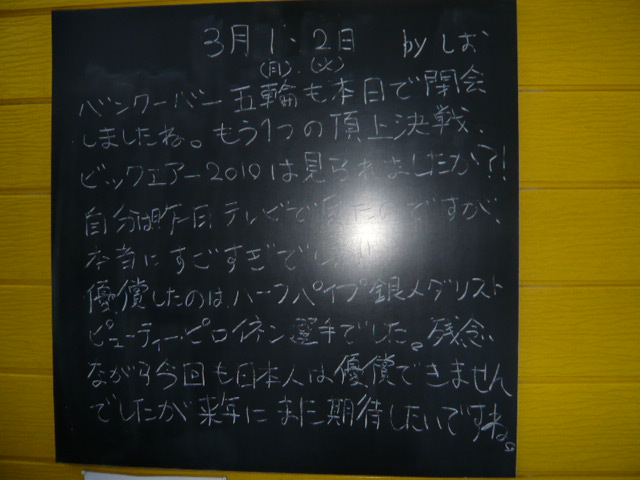 3月1・2日 by しお
(月)(火)
バンクーバー五輪も本日で閉会
しましたね。もう1つの頂上決戦、
ビックエアー2010は見られましたか?!
自分は昨日テレビで ですが、
本当にすごすぎで
優償したのは、ハーフパイプ銀メダリスト
ピューティー・ピロイネン選手でした。残念
ながら今回も日本人は優償できません
でしたが来年にまた期待したいですね。